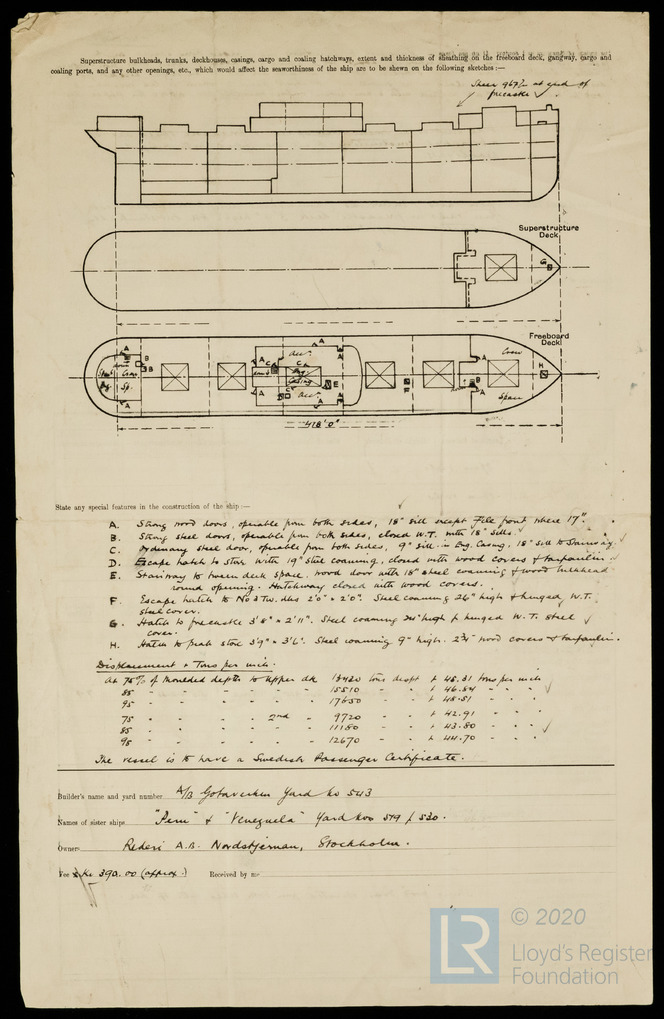 Superstructure bulkheads, trunks, deckhouses, casings, cargo and coaling hatchways, extent and thickness of sheathing on the freeboard deck, gangway, cargo and
coaling ports, and any other openings, etc., which would affect the seaworthiness of the ship are to be shewn on the following sketches :—
Sheer 96 at end of
forecastle
Superstructure
Deck
G
Freeboard
Deck
A
B
B
A
A
C
A
Acc.
A
Crew
H
Sp.
Eng.
Casing
E
F
B
A
Space
A
C
Acc.
A
418' 0"
State any special features in the construction of the ship :—
A. Strong wood doors, operable from both sides, 18" sill except front where 17".
B. Strong steel doors, operable from both sides, closed W.T. with 18" sills.
C. Ordinary steel door, operable from both sides, 9" sill in Eng. Casing. 18" sill to Stairway
D. Escape hatch to Stor with 19" steel coaming, closed with wood covers & tarpaulin
E. Stairway to tween deck space. wood door with 18" steel coaming & wood bulkhead
round opening. Hatchway closed with wood covers.
F. Escape hatch to No 3 Tw. dks 2'0" × 2'0". Steel coaming 26" high & hinged W.T.
steel cover.
G. Hatch to forecastle 3'8" × 2'11". Steel coaming high & hinged W.T. steel
cover.
H. Hatch to peak store 3'9" × 3'6". Steel coaming 9" high. 2¾" wood covers & tarpaulin.
Displacement & Tons per inch.
At 75% of moulded depth to upper dk 13420 tons displt & 45.31 tons per inch
85 " " " " 15510 " " & 46.84 " " "
95 " " " " 17650 " " & 48.51 " " "
75 " " " 2nd " 9720 " " & 42.91 " " "
85 " " " " 11180 " " & 43.80 " " "
95 " " " " 12670 " " & 44.70 " " "
The vessel is to have a Swedish Passenger Certificate.
Builder's name and yard number A/B Gotaverken Yard No 543
Names of sister ships "Peru" & "Venezuela" Yard Nos 519 & 530.
Owners Rederi A.B. Nordstjernan, Stockholm.
Fee Kr. 390.00 (approx.) Received by me
LR
© 2020
Lloyd's Register
Foundation